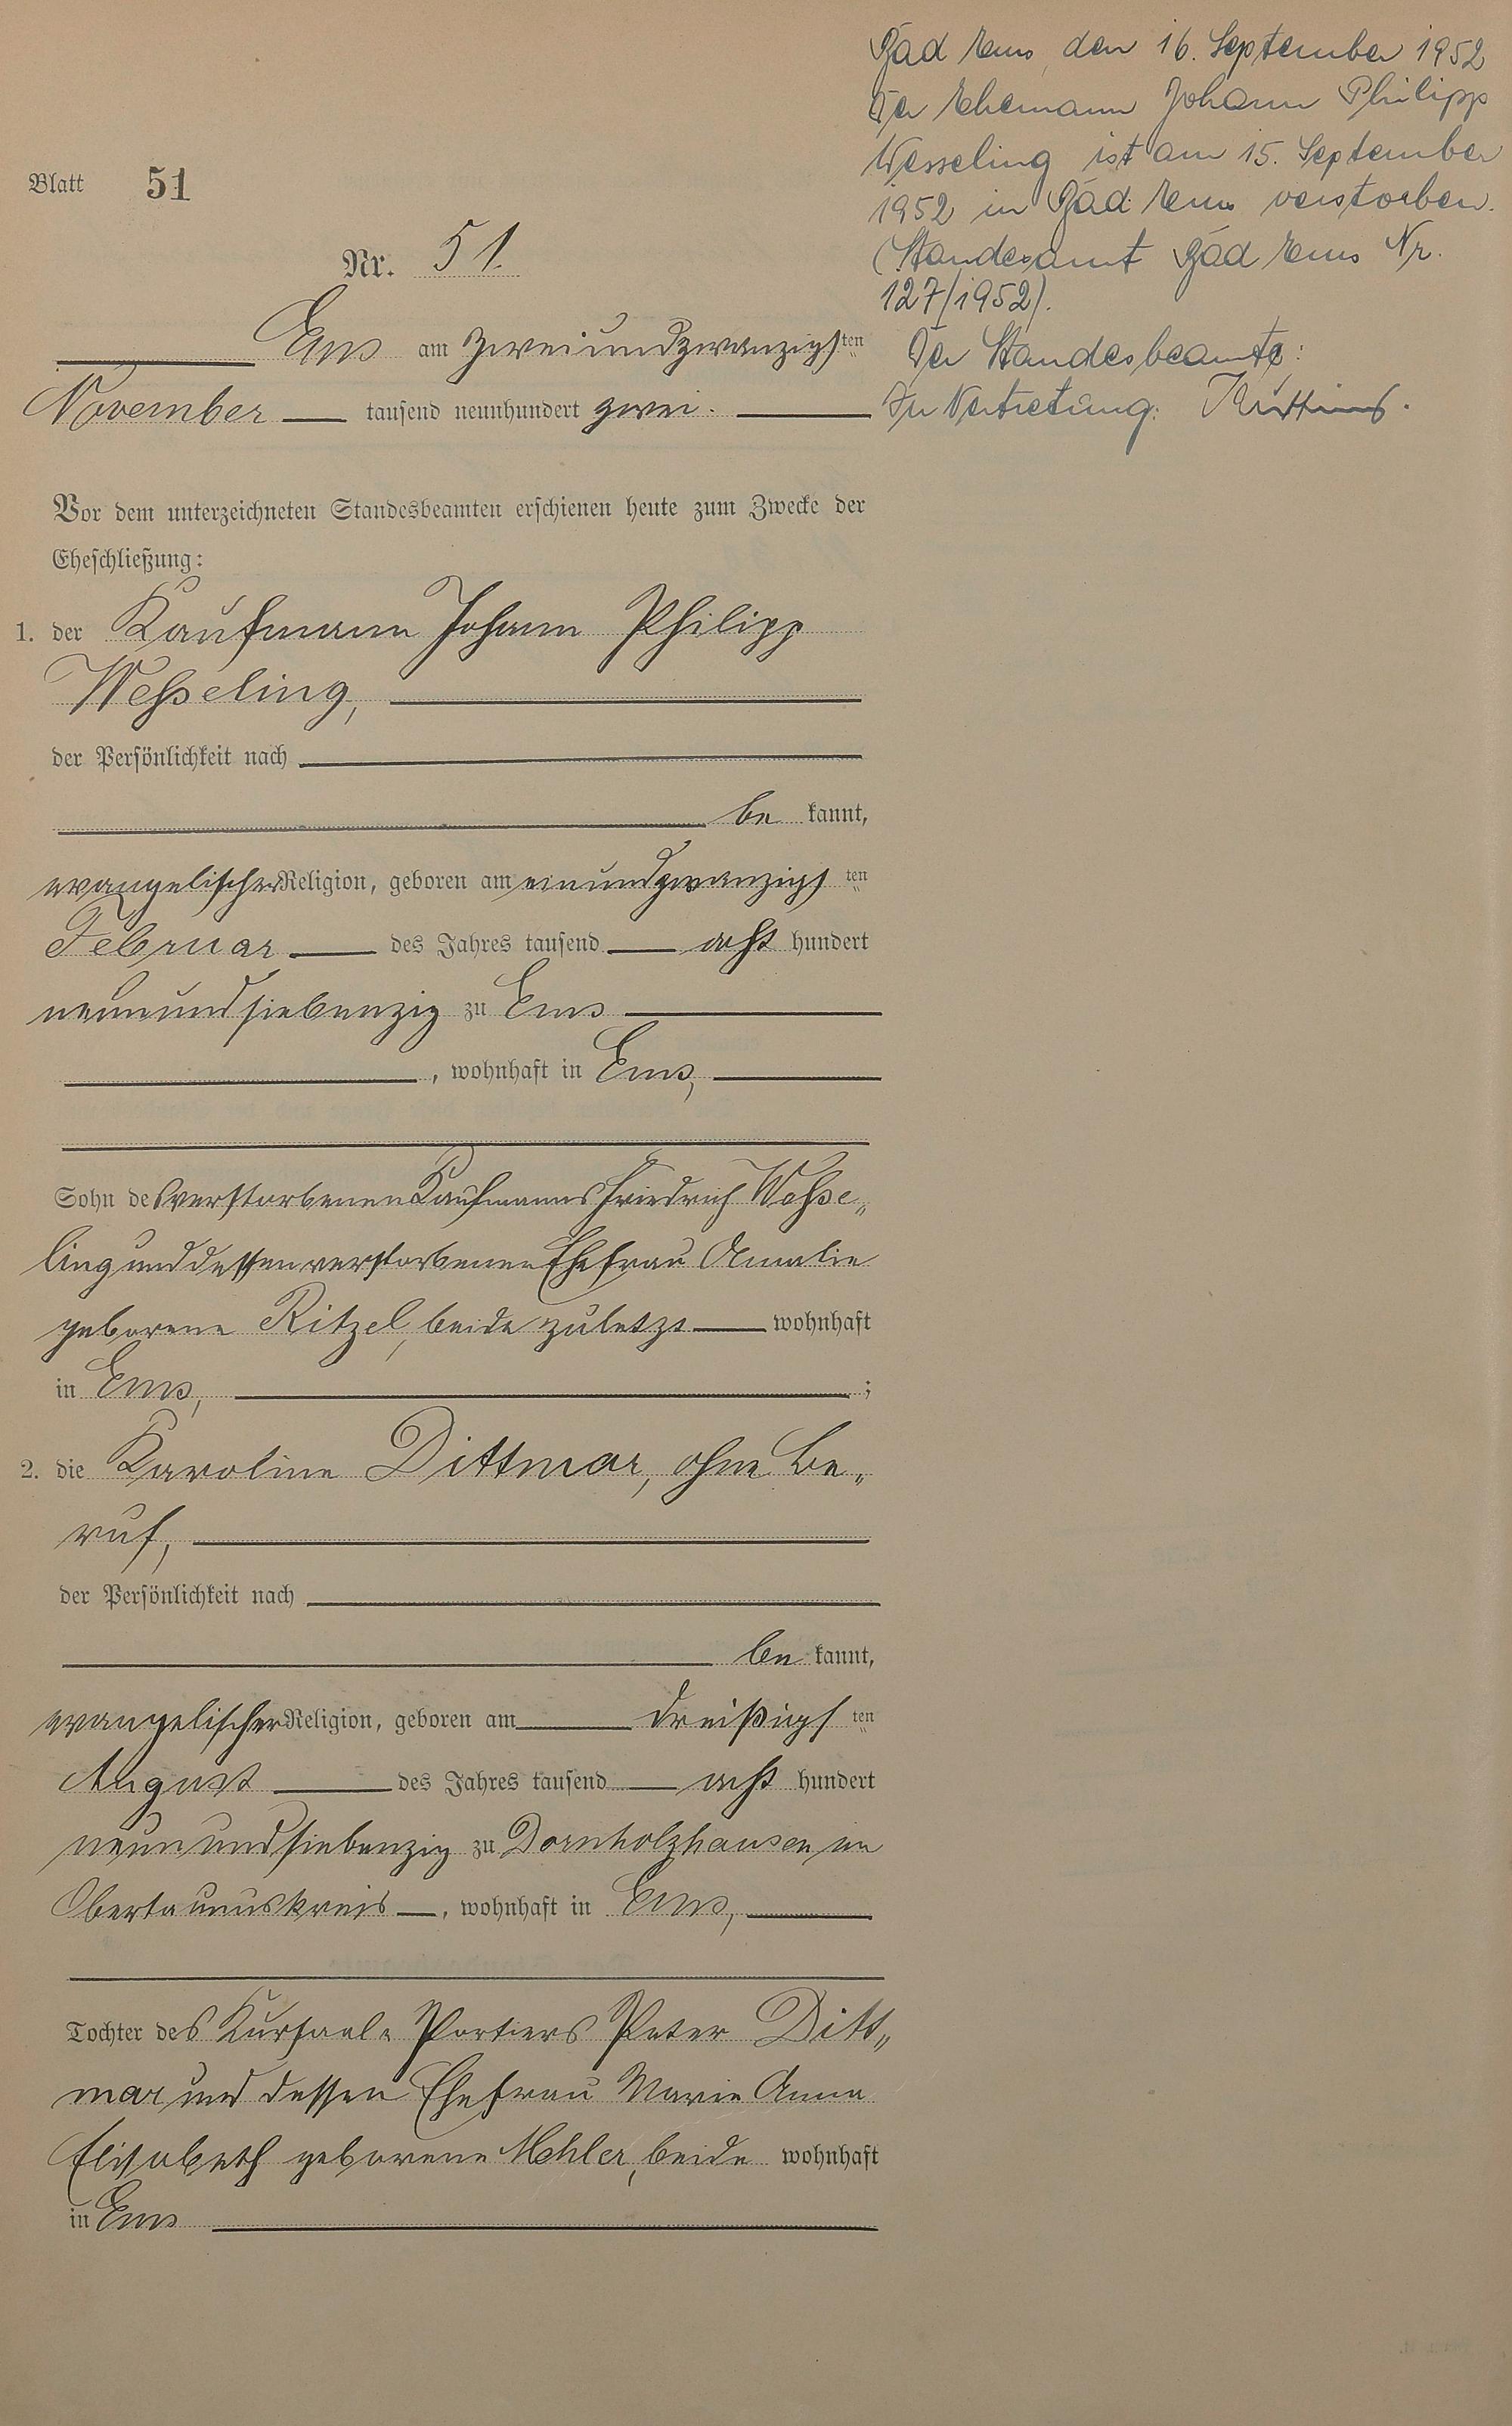 Blatt 51
Nr. 51.
Ems am zweiundzwanzigsten
November tausend neunhundert zwei.
Vor dem unterzeichneten Standesbeamten erschienen heute zum Zwecke der
Eheschließung:
1. der Kaufmann Johann Philipp
Weßeling,
der Persönlichkeit nach
be kannt,
evangelischer Religion, geboren am einundzwanzigsten
Februar des Jahres tausend acht hundert
neunundsiebenzig zu Ems
, wohnhaft in Ems,
Sohn des verstorbenen Kaufmanns Friedrich Weße„
ling und dessen verstorbenen Ehefrau Amalie
geborene Ritzel, beide zuletzt wohnhaft
in Ems, ;
2. die Karoline Dittmar, ohne Be„
ruf,
der Persönlichkeit nach
be kannt,
evangelischer Religion, geboren am dreißigsten
August des Jahres tausend acht hundert
neunundsiebenzig zu Dornholzhausen im
Obertaunuskreis, wohnhaft in Ems,
Tochter des Kursaal-Portiers Peter Ditt„
mar und dessen Ehefrau Marie Anna
Elisabeth geborene Mohler, beide wohnhaft
in Ems
Bad Ems, den 16. September 1952
Der Ehemann Johann Philipp
Wesseling ist am 15. September
1952 in Bad Ems verstorben.
(Standesamt Bad Ems Nr.
127/1952).
Der Standesbeamte:
In Vertretung: